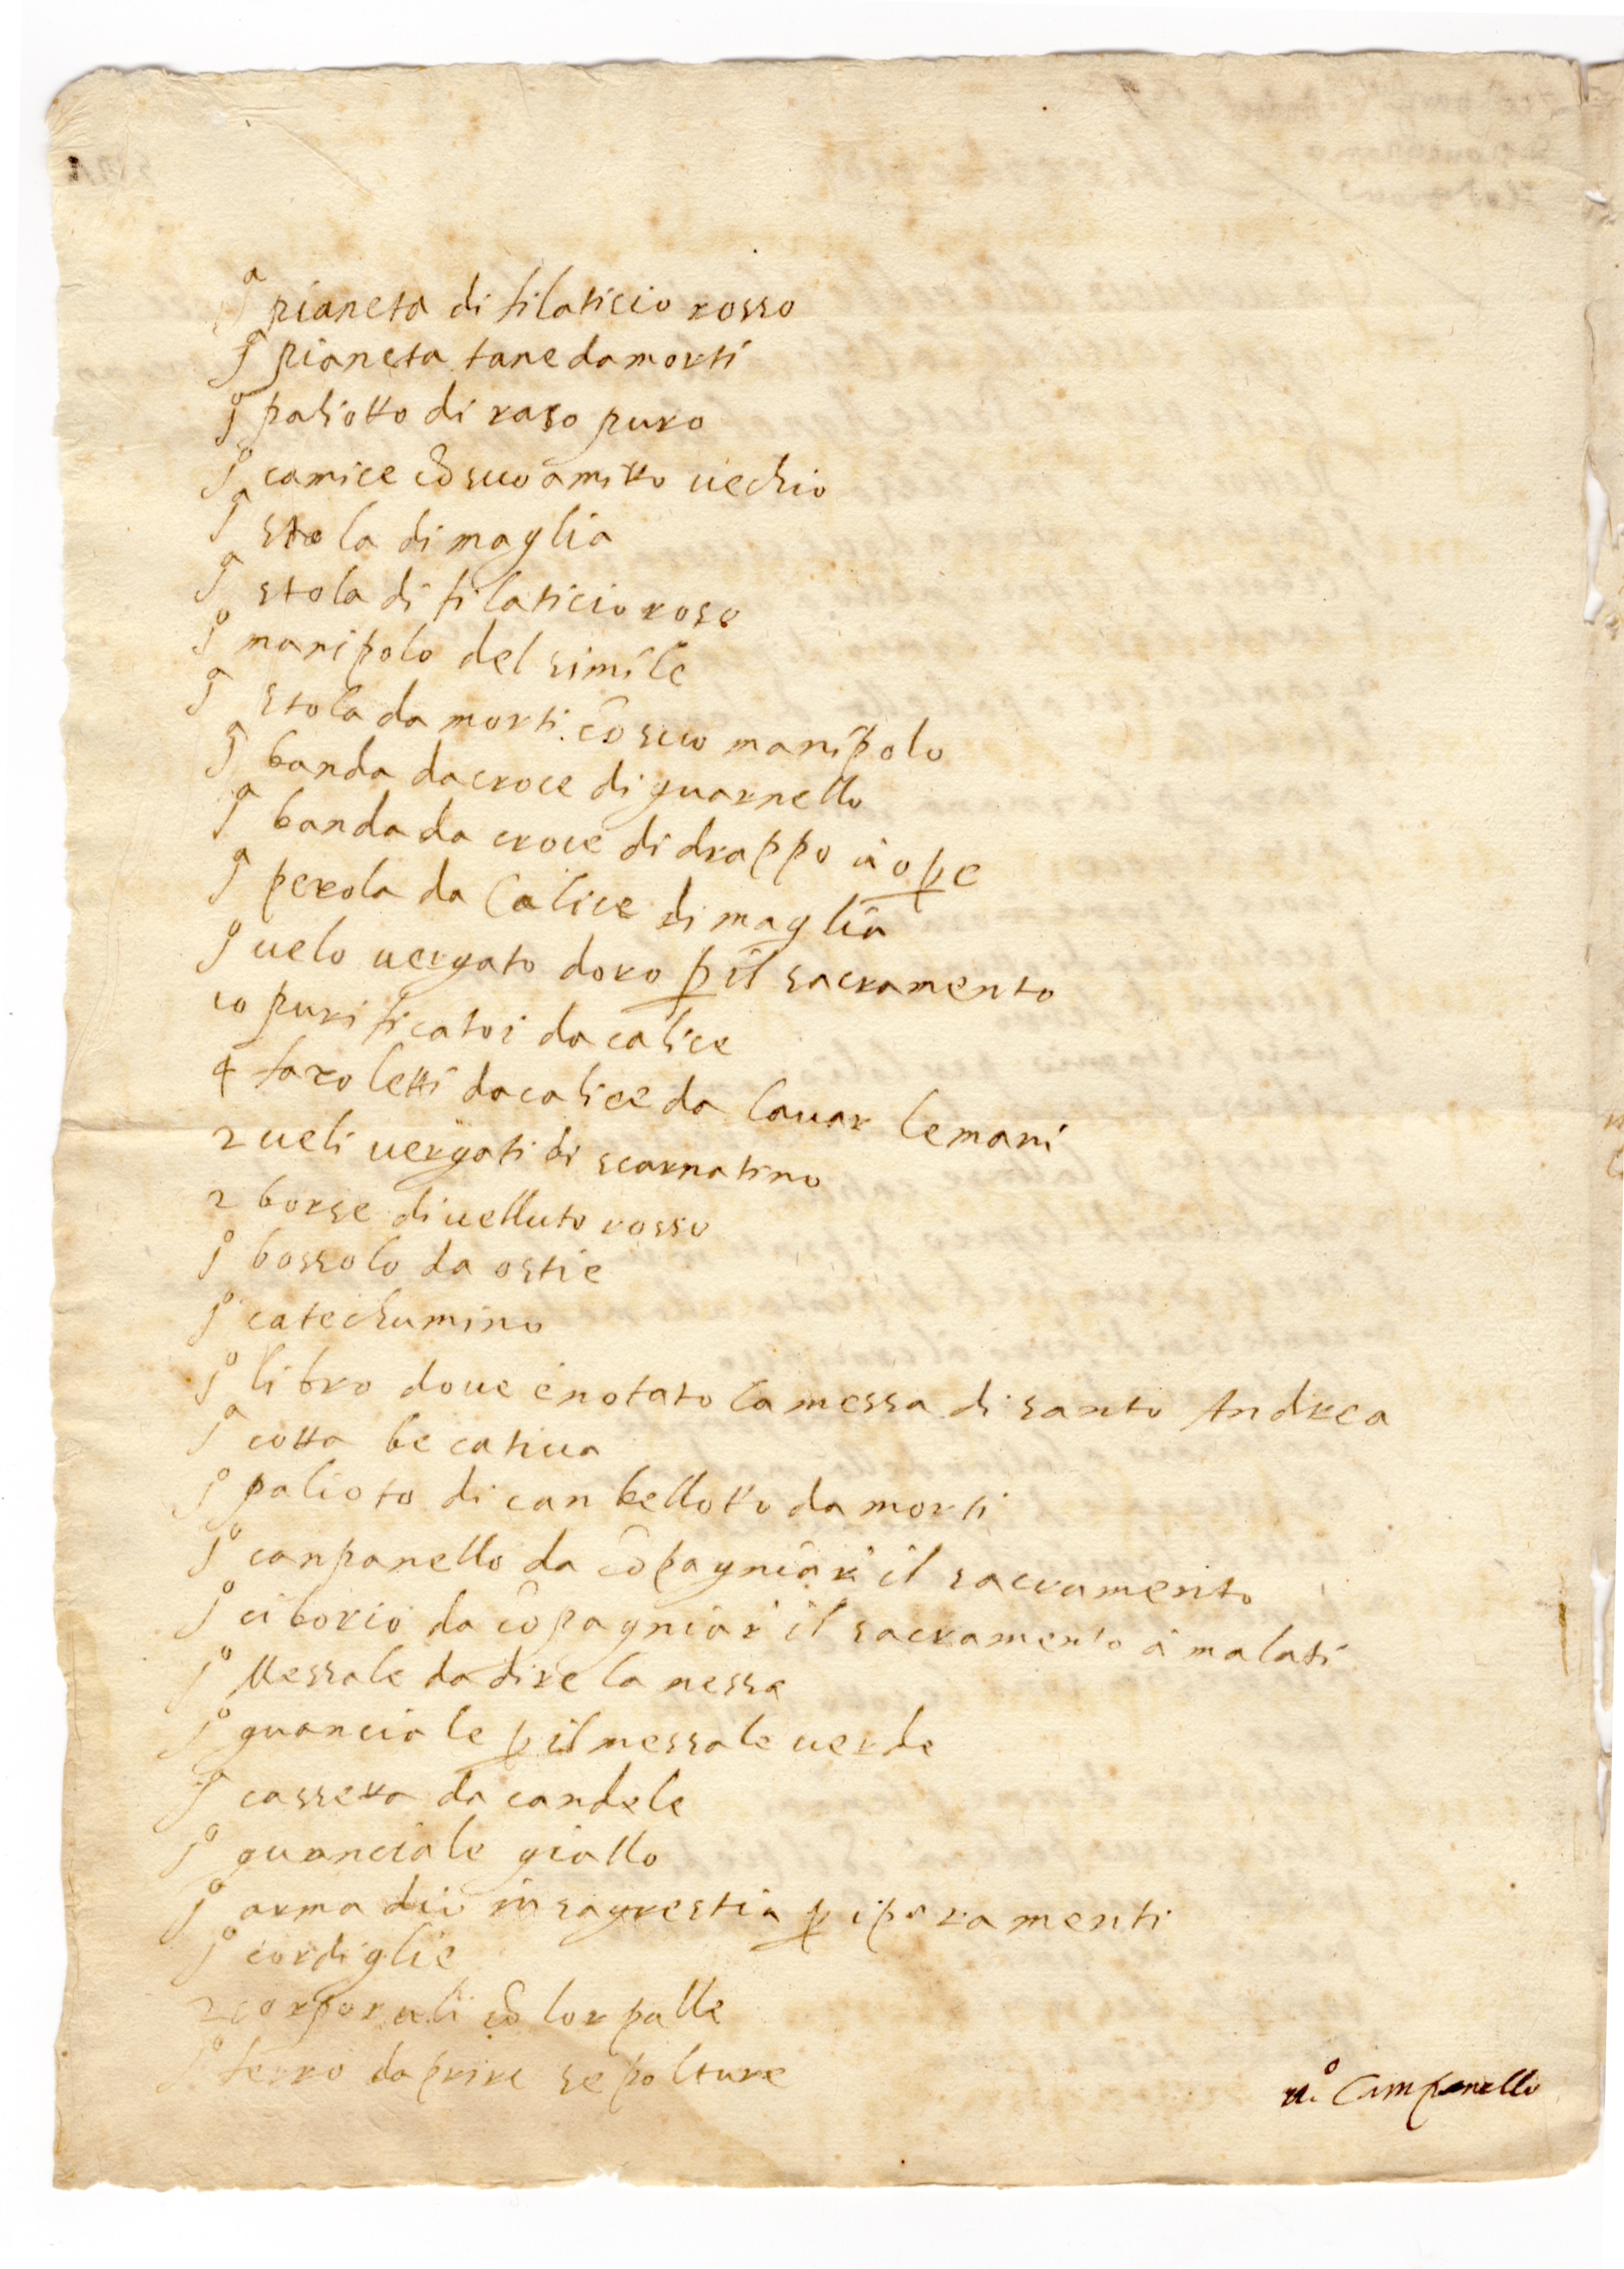 jᵃ pianeta di filaticio rosso
jᵃ pianeta tane da morti
jº paliotto di raso puro
jº camice cõ suo amitto uechio
jᵃ stola di maglia
jᵃ stola di filaticio roso
jº manipolo del simile
jᵃ stola da morti cõ suo manipolo
jᵃ banda da croce di guarnello
jᵃ banda da croce di drappo à op̱e
jᵃ pezola da Calice di maglia
jº uelo uergato doro p̱ il sacramento
10 purificatoi da calice
4 fazoletti da calice da lauar le mani
2 ueli uergati di scarnatino
2 borse di uelluto rosso
jº bossolo da ostie
jº catechumino
jº libro doue è notato la messa di santo Andrea
jᵃ cotta be catiua
jº palioto di canbellotto da morti
jº canpanello da cõpagniar il sacramento
jº ciborio da cõpagniar il sacramento à malati
jº Messale da dire la messa
jº guanciale p̱ il messale uerde
jᵃ cassetta da candele
jº guanciale giallo
jº armadio in sagrestia p̱ i paramenti
jº cordiglie
2 corporali cõ lor palle
jº ferro da prire sepolture
nº Campanello